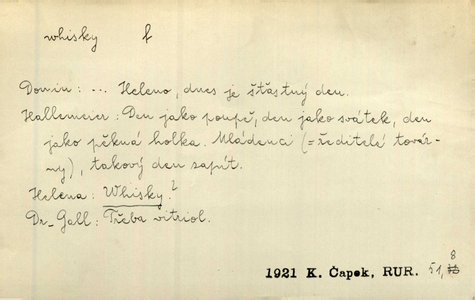 whisky f
Domin: ... Heleno, dnes je šťastný den.
Hallemeier: Den jako poupě, den jako svátek, den
jako pěkná holka. Mládenci (=ředitelé továr-
ny), takový den zapít.
Helena: Whisky?
Dr. Gall: Třeba vitriol.
1921 K. Čapek, RUR. 51, 8